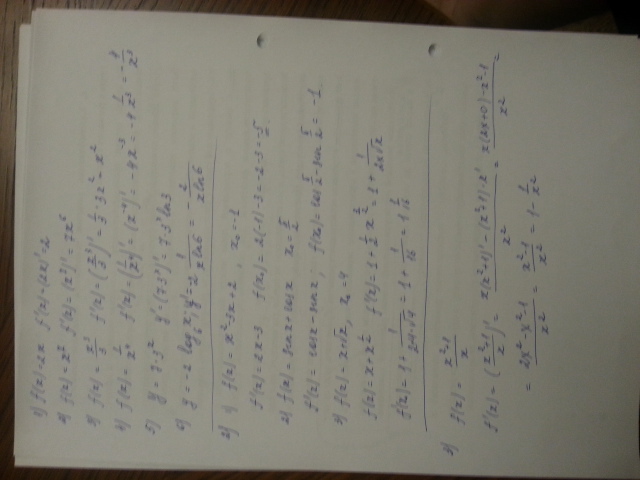 1) f(x) = 2x f'(x) = (2x)' = 2
2) f(x) = x⁷ f'(x) = (x⁷)' = 7x⁶
3) f(x) = x³/3 f'(x) = (x³/3)' = 1/3 · 3x² = x²
4) f(x) = 1/x⁴ f'(x) = (1/x⁴)' = (x⁻⁴)' = -4x
5) y = 7·3ˣ y' = (7·3ˣ)' = 7·3ˣ ln3
6) y = -2 log₆x; y' = -2 1/(x ln6) = -2/(x ln6)
2) 1) f(x) = x² - 3x + 2, x₀ = -1
f'(x) = 2x - 3 f(x₀) = 2(-1) - 3 = -2 - 3 = -5
2) f(x) = sinx + cosx x₀ = π/2
f'(x) = cosx - sinx; f(x₀) = cos π/2 - sin π/2 = -1
3) f(x) = x + √x, x₀ = 4
f(x) = x + x^½ f'(x) = 1 + 1/2 x
3) f(x) = (x²+1)/x
f'(x) = ((x²+1)/x)' = (x(x²+1)' - (x²+1)·x')/x² = (x(2x+0) - x² - 1)/x² =
= (2x² - x² - 1)/x² = (x² - 1)/x² = 1 - 1/x²